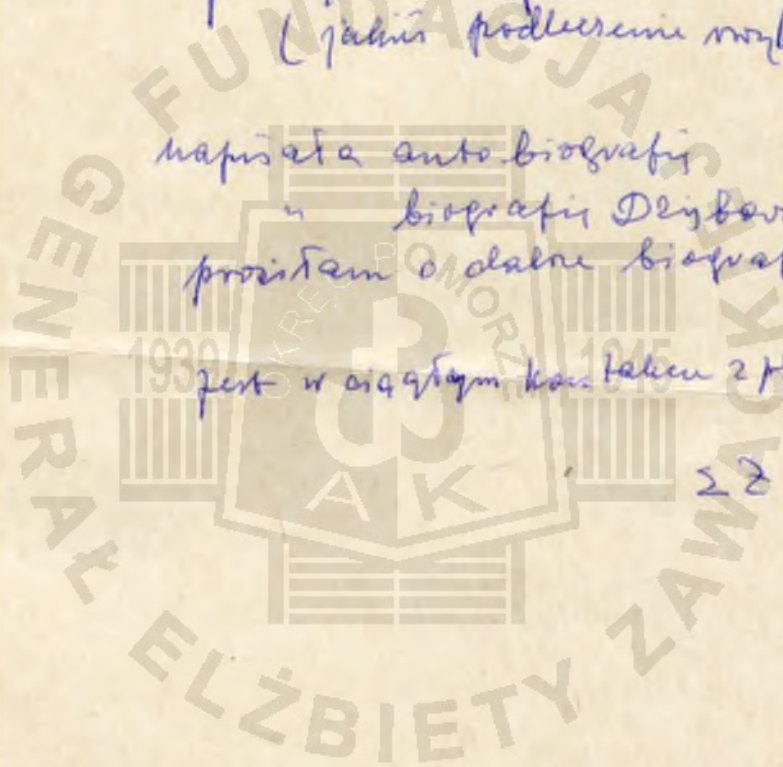 ( jakieś podleczenie
napisała autobiografię
" biografię
prosiłam o dalsze
jest w ciągłym kontakcie z
ΣZ
FUNDACJA GENERAŁ ELŻBIETY ZAWACKIEJ
OKRĘG POMORZE
1939 1945
AK